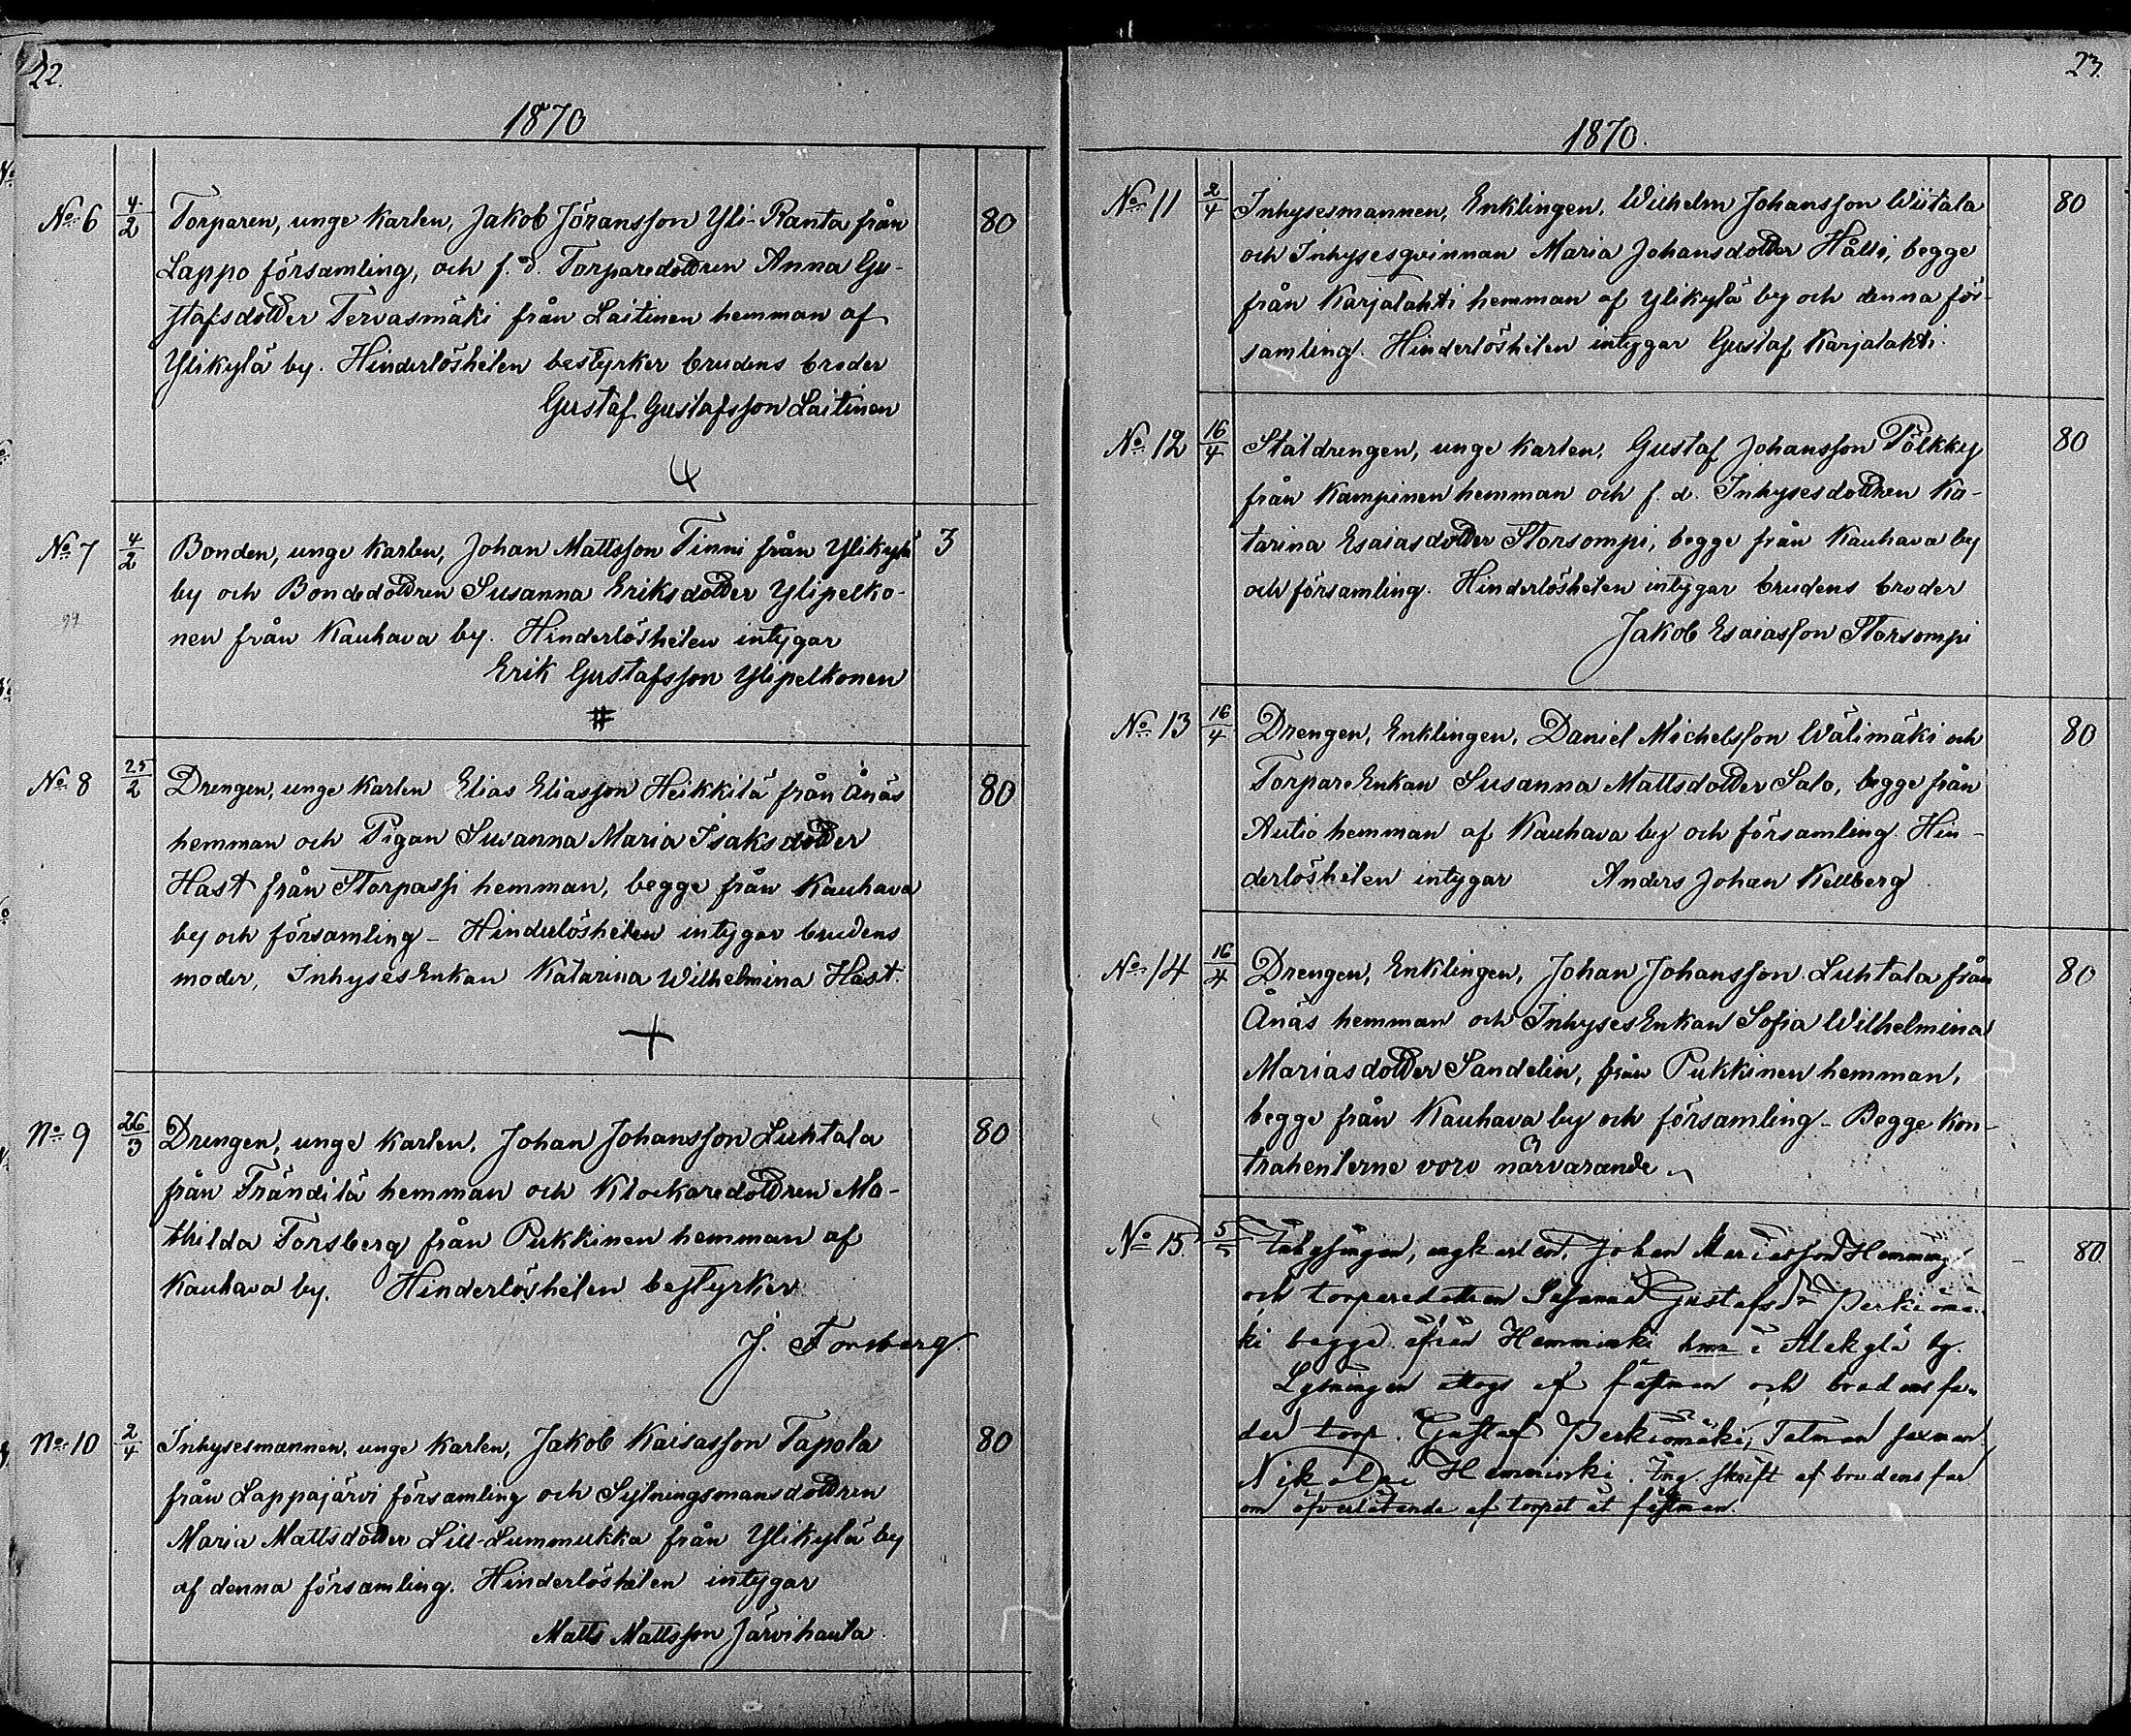 22.
1870
No 6 4/2 Torparen, unge karlen, Jakob Jöransson Yli-Ranta från 80
Lappo församling, och f. d. Torparedottren Anna Gu-
stafsdotter Tervasmäki från Laitinen hemman af
Ylikylä by. Hinderlösheten bestyrker brudens broder
Gustaf Gustafsson Laitinen
No 7 4/2 Bonden, unge karlen, Johan Mattsson Tinni från Ylikylä 3
by och Bondedottren Susanna Eriksdotter Ylipelko-
nen från Kauhava by. Hinderlösheten intygar
Erik Gustafsson Ylipelkonen
#
No 8 25/2 Drengen, unge karlen Elias Eliasson Heikkilä från Ånäs 80
hemman och Pigan Susanna Maria Isaksdotter
Hast från Storpassi hemman, begge från Kauhava
by och församling - Hinderlösheten intygar brudens
moder, InhysesEnkan Katarina Wilhelmina Hast.
+
No 9 26/3 Drengen, unge karlen, Johan Johansson Luhtala 80
från Frändilä hemman och Klockaredottren Ma-
thilda Forsberg från Pukkinen hemman af
Kauhava by. Hinderlösheten bestyrker
J. Forsberg.
No 10 2/4 Inhysesmannen, unge karlen, Jakob Kaisasson Tapola 80
från Lappajärvi församling och Sytningsmansdottren
Maria Mattsdotter Lill-Lummukka från Ylikylä by
af denna församling. Hinderlösheten intygar
Matts Mattsson Järvihauta
23.
1870.
No 11 2/4 Inhysesmannen, Enklingen, Wilhelm Johansson Wiitala 80
och Inhysesqvinnan Maria Johansdotter Hålli, begge
från Karjalahti hemman af Ylikylä by och denna för-
samling. Hinderlösheten intygar Gustaf Karjalahti.
No 12 16/4 Staldrengen, unge karlen, Gustaf Johansson Pölkky 80
från Kampinen hemman och f. d. Inhysesdottren Ka-
tarina Esaiasdotter Storsompi, begge från Kauhava by
och församling. Hinderlösheten intygar brudens broder
Jakob Esaiasson Storsompi
No 13 16/4 Drengen, Enklingen, Daniel Michelsson Wälimäki och 80
TorpareEnkan Susanna Mattsdotter Salo, begge från
Autio hemman af Kauhava by och församling. Hin-
derlösheten intygar Anders Johan Kellberg
No 14 16/4 Drengen, Enklingen, Johan Johansson Luhtala från 80
Ånäs hemman och InhysesEnkan Sofia Wilhelmina
Mariasdotter Sandelin, från Pukkinen hemman,
begge från Kauhava by och församling - Begge kon-
trahenterne voro närvarande
No 15 5/5 Johan Mariasson Hemming 80
och torparedottren Susanna Gustafsdr Perkiömä-
ki begge från Hemminki hmn i Alakylä by.
Lysningen uttogs af fästman och brudens fa-
der torp. Gustaf Perkiömäki, Talman sexman
Nikolai Hemminki. Ing. skrift af brudens far
om öfverlåtande af torpet åt fästman.